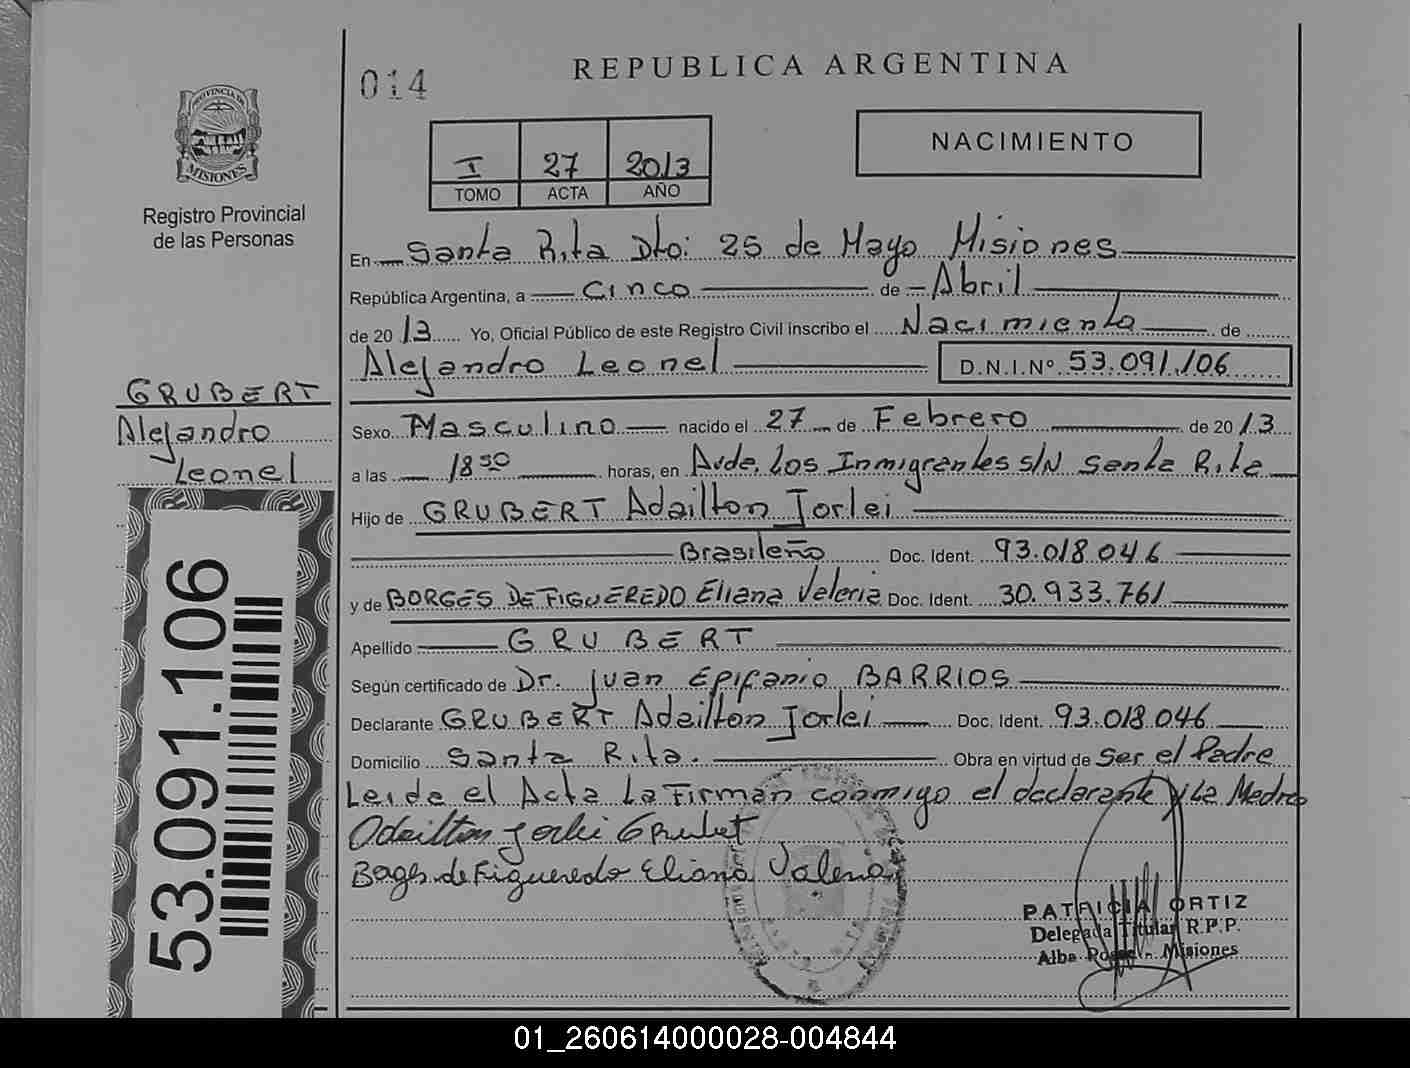 014
REPUBLICA ARGENTINA
NACIMIENTO
I 27 2013
TOMO ACTA AÑO
PROVINCIA DE
MISIONES
Registro Provincial
de las Personas
En Santa Rita Dto: 25 de Mayo Misiones
República Argentina, a Cinco de Abril
de 2013 Yo, Oficial Público de este Registro Civil inscribo el Nacimiento de
Alejandro Leonel D.N.I.Nº 53.091.106
GRUBERT
Alejandro
Leonel
53.091.106
Sexo Masculino nacido el 27 de Febrero de 2013
a las 18 50 horas, en Avda. Los Inmigrantes s/N Santa Rita
Hijo de GRUBERT Adailton Jorlei
Brasileño Doc. Ident. 93.018.046
y de BORGES DE FIGUEREDO Eliana Valeria Doc. Ident. 30.933.761
Apellido GRUBERT
Según certificado de Dr. Juan Epifanio BARRIOS
Declarante GRUBERT Adailton Jorlei Doc. Ident. 93.018.046
Domicilio Santa Rita. Obra en virtud de Ser el Padre
Leida el Acta La Firman conmigo el declarante y La Madre
Odailton Jorlei Grubert
Borges de Figueredo Eliana Valeria
PATRICIA ORTIZ
Delegada Titular R.P.P.
Alba Posse - Misiones
01_260614000028-004844